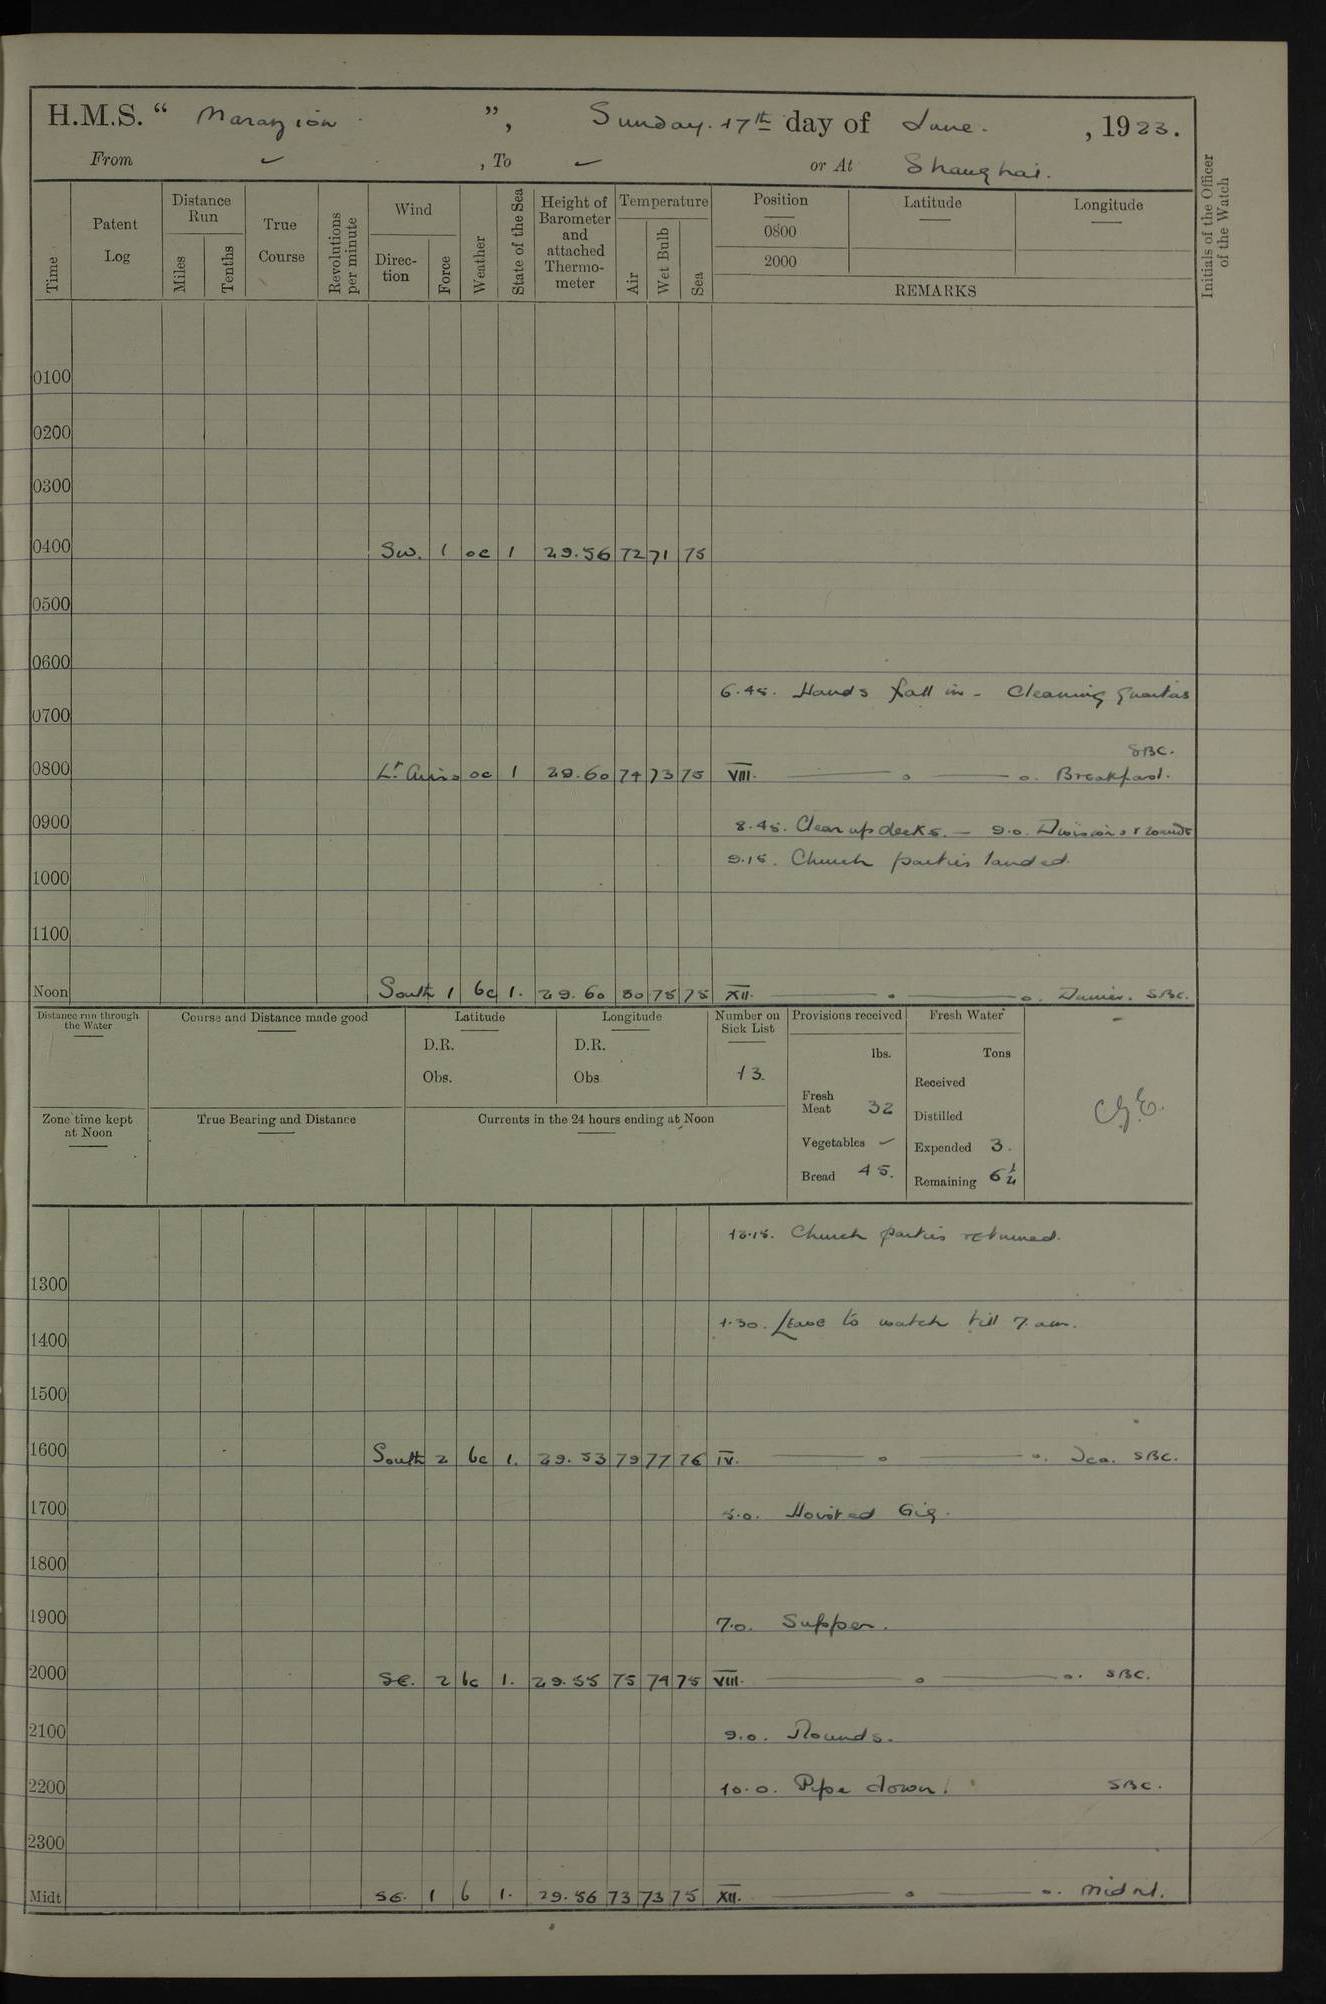 H.M.S. “ Marazion ”, Sunday. 17th day of June. , 1923.
From ✓ , To ✓ or At Shanghai.
Time Patent Log Distance Run Miles Tenths True Course Revolutions per minute Wind Direc-tion Force Weather State of the Sea Height of Barometer and attached Thermo-meter Temperature Air Wet Bulb Sea Position 0800 2000 Latitude Longitude
REMARKS
Initials of the Officer of the Watch
0100
0200
0300
0400 SW. 1 oc 1 29.56 72 71 75
0500
0600
6.45. Hands fall in - Cleaning quarters
0700
SBC.
0800 Lt. airs oc 1 29.60 74 73 75 VIII. —— o —— o. Breakfast.
0900 8.45. Clear up decks. — 9.0. Divisions & rounds
9.15. Church parties landed.
1000
1100
Noon South 1 bc 1. 29.60 80 75 75 XII. —— o —— o. Dinner. SBC.
Distance run through the Water Course and Distance made good Latitude Longitude Number on Sick List Provisions received Fresh Water
D.R. D.R. lbs. Tons
Obs. Obs 13. Received
Fresh Meat 32 Distilled
Zone time kept at Noon True Bearing and Distance Currents in the 24 hours ending at Noon
Vegetables ✓ Expended 3.
Bread 45. Remaining 6¼
Church parties returned.
1300
1.30. Leave to watch till 7. am.
1400
1500
1600 South 2 bc 1. 29.53 79 77 76 IV. —— o —— o. Tea. SBC.
1700 5.0. Hoisted Gig.
1800
1900 7.0. Supper.
2000 SE. 2 bc 1. 29.55 75 74 75 VIII. —— o —— o. SBC.
2100 9.0. Rounds.
2200 10.0. Pipe down. SBC.
2300
Midt SE. 1 b 1. 29.56 73 73 75 XII. —— o —— o. Midnt.